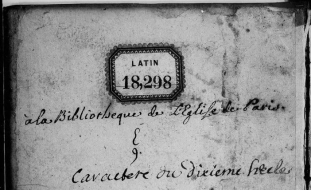 LATIN
18,298
à la Bibliotheque de l'Eglise de Paris.
E
9.
Caractere du dixieme Siecle